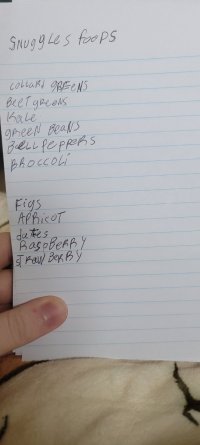 SNUGGLES FOODS
COLLARD GREENS
BEET GREENS
KALE
GREEN BEANS
BELL PEPPERS
BROCCOLI
FIGS
APRICOT
dates
RASPBERRY
STRAWBERRY